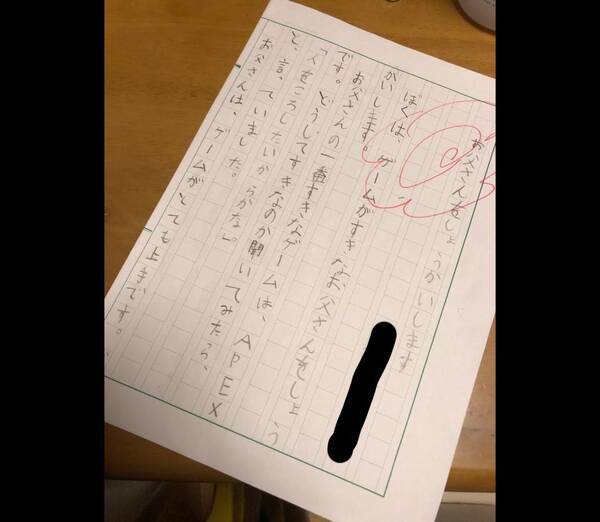 お父さんをしょうかいします
ぼくは、ゲームがすきなお父さんをしょう
かいします。
お父さんの一番すきなゲームは、APEX
です。どうしてすきなのか聞いてみたら、
「人をころしたいからかな」
と、言っていました。
お父さんは、ゲームがとても上手です。